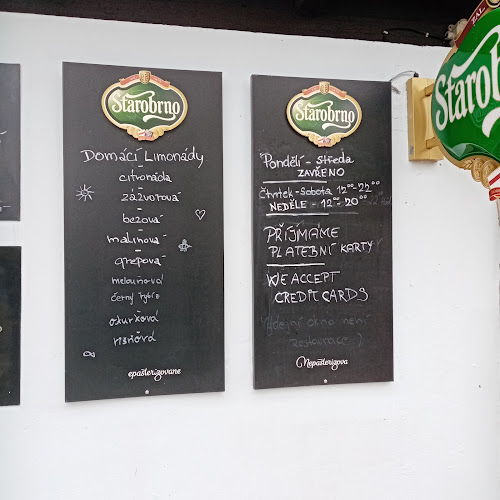 Starobrno
Domácí Limonády
citronáda
zázvorová
bezová
malinová
grepová
melounová
černý rybíz
okurková
višňová
epasterizovane
Starobrno
Pondělí - Středa
ZAVŘENO
Čtvrtek - Sobota 12⁰⁰-22⁰⁰
NEDĚLE - 12⁰⁰-20⁰⁰
PŘIJMÁME
PLATEBNÍ KARTY
WE ACCEPT
CREDIT CARDS
Výdejní okno není
restaurace )
Nepasterizova
ZAL.
Starobr